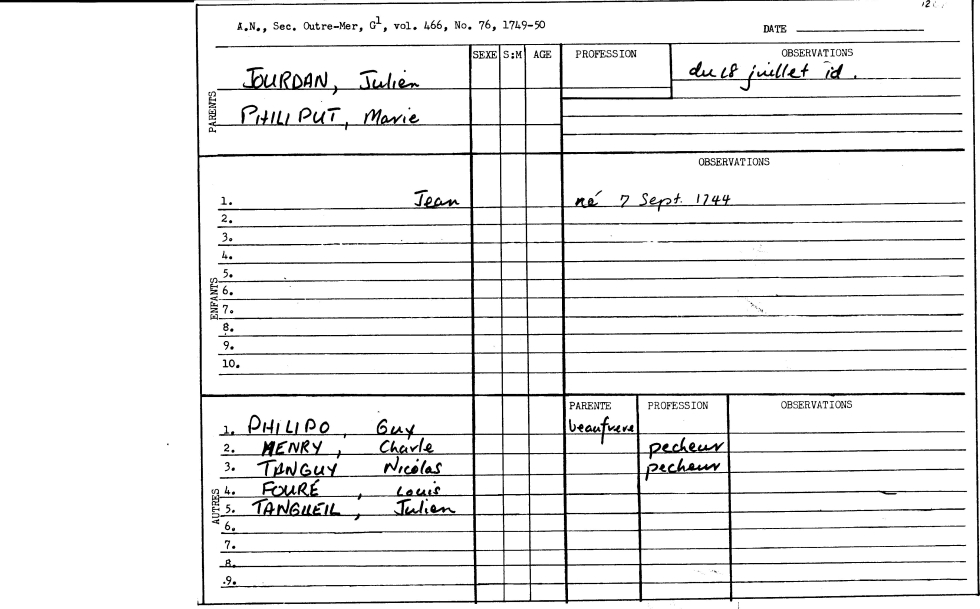 A.N., Sec. Outre-Mer, G1, vol. 466, No. 76, 1749-50
DATE
SEXE S:M AGE PROFESSION OBSERVATIONS
PARENTS
JOURDAN, Julien du 18 juillet id.
PHILIPUT, Marie
OBSERVATIONS
ENFANTS
1. Jean né 7 Sept. 1744
2.
3.
4.
5.
6.
7.
8.
9.
10.
PARENTE PROFESSION OBSERVATIONS
AUTRES
1. PHILIPO, Guy beaufrere
2. HENRY, Charle pecheur
3. TANGUY Nicolas pecheur
4. FOURÉ, Louis
5. TANGUEIL, Julien
6.
7.
8.
9.